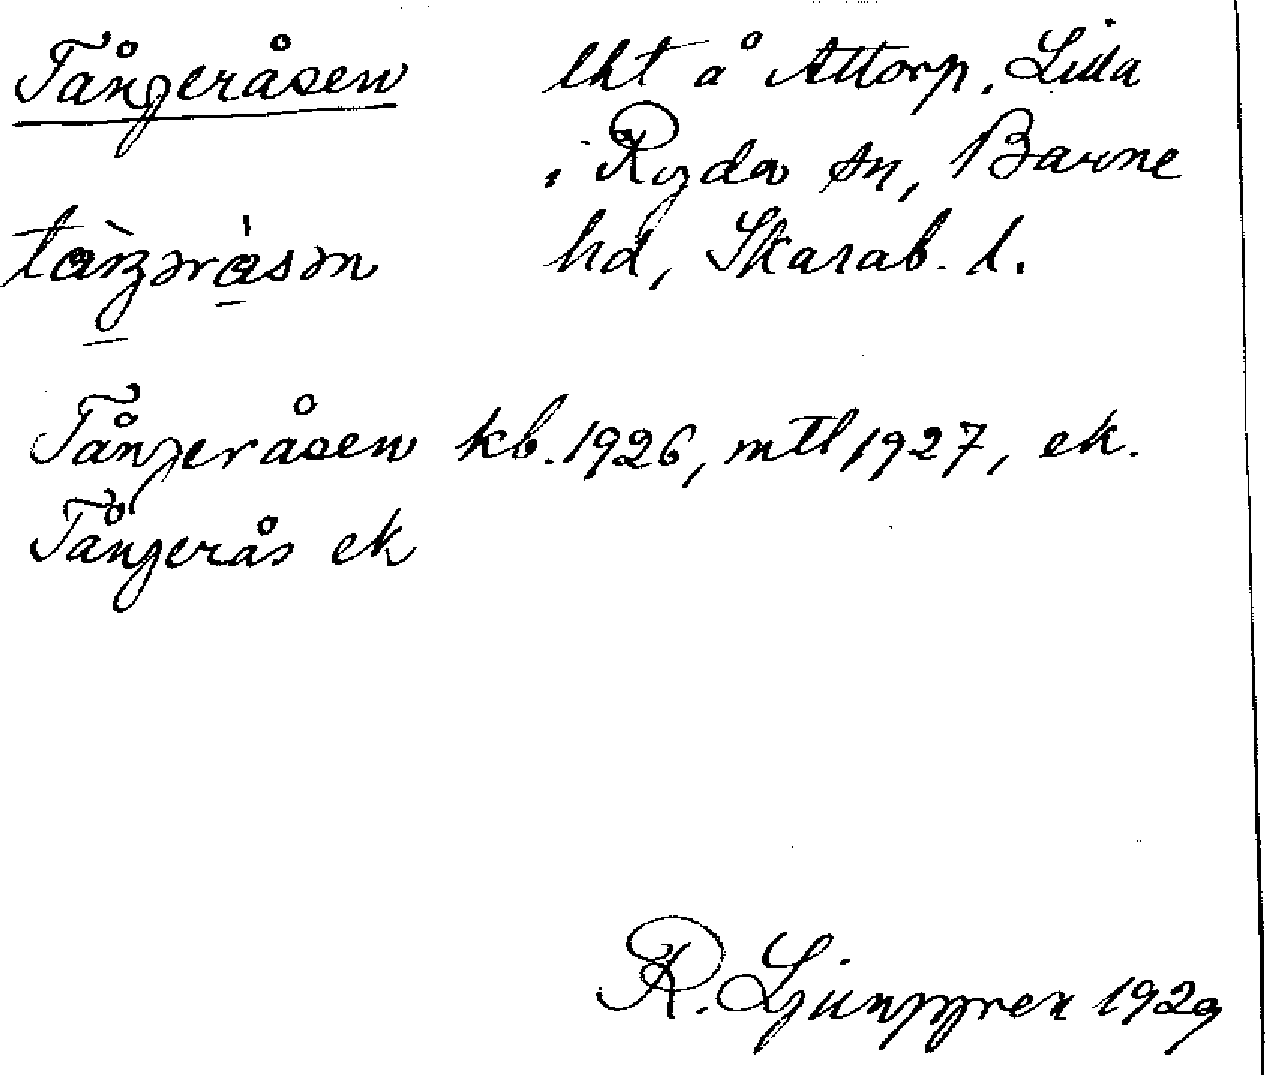 Tångeråsen lht å Attorp, Lilla
i Ryda sn, Barne
hd, Skarab. l.
Tångeråsen kb. 1926, mtl 1927, ek.
Tångerås ek
R. Ljunggren 1929